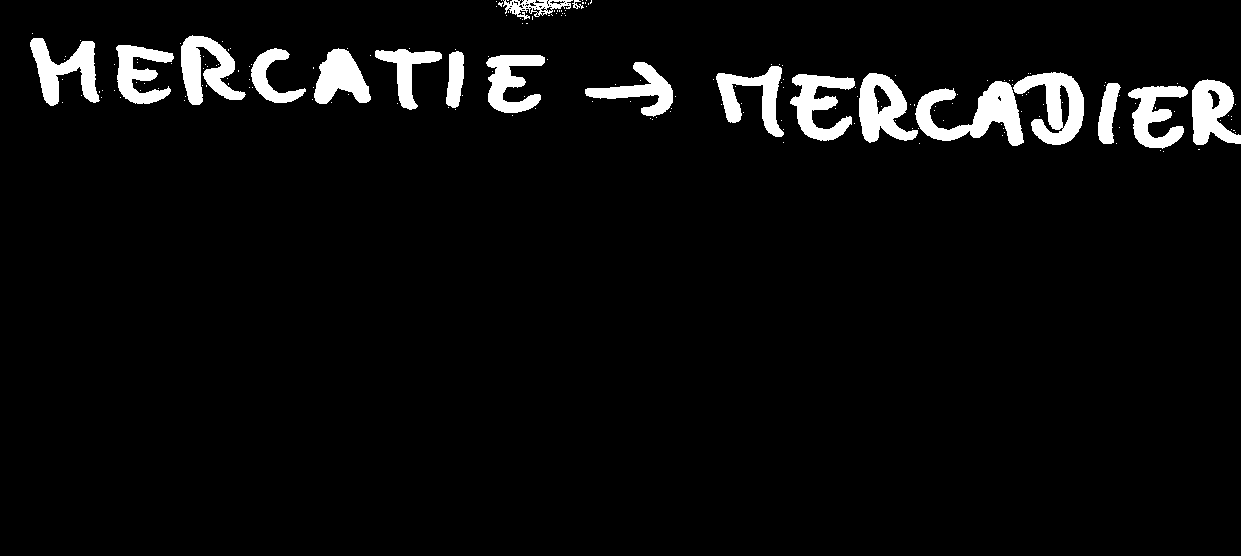 MERCATIE → MERCADIER